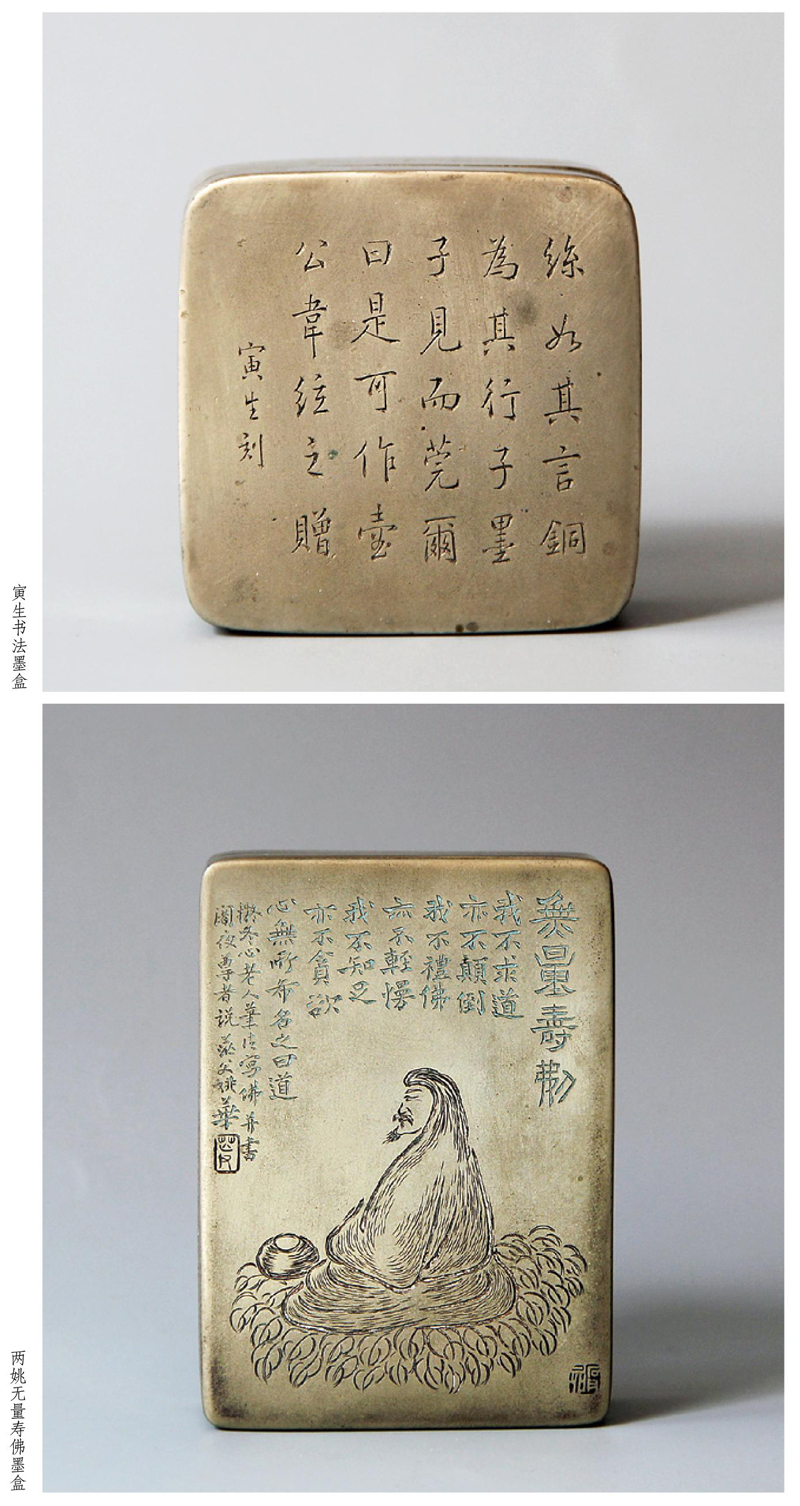 寅生书法墨盒
絲如其言銅
為其行子墨
子見而莞爾
曰是可作壺
公韋絃之贈
寅生刻
两姚无量寿佛墨盒
無量壽佛
我不求道
亦不顛倒
我不禮佛
亦不輕慢
我不知足
亦不貪欲
心無所希名之曰道
擬冬心老人筆法寫佛并書
闍夜尊者说 茫父姚華
茫父